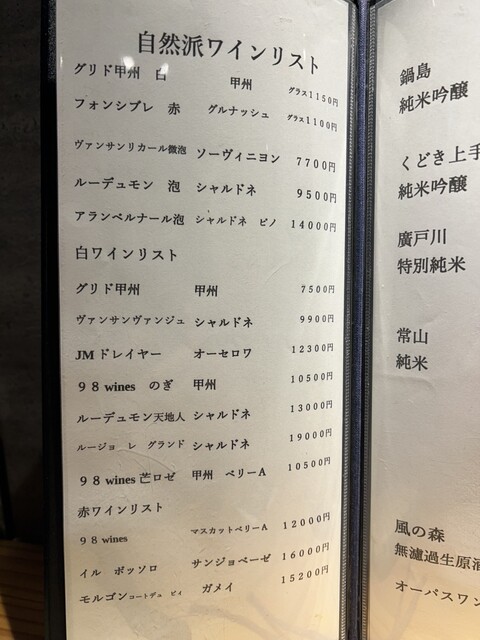 自然派ワインリスト
グリド甲州 白 甲州 グラス1150円
フォンシプレ 赤 グルナッシュ グラス1100円
ヴァンサンリカール微泡 ソーヴィニヨン 7700円
ルーデュモン 泡 シャルドネ 9500円
アランベルナール泡 シャルドネ ピノ 14000円
白ワインリスト
グリド甲州 甲州 7500円
ヴァンサンヴァンジュ シャルドネ 9900円
JMドレイヤー オーセロワ 12300円
98wines のぎ 甲州 10500円
ルーデュモン天地人 シャルドネ 13000円
ルージョ レ グランド シャルドネ 19000円
98wines芒ロゼ 甲州 ベリーA 10500円
赤ワインリスト
98wines マスカットベリーA 12000円
イル ボッソロ サンジョベーゼ 16000円
モルゴンコートデュ ピィ ガメイ 15200円
鍋島
純米吟醸
くどき上手
純米吟醸
廣戸川
特別純米
常山
純米
風の森
無濾過生原酒
オーパスワン